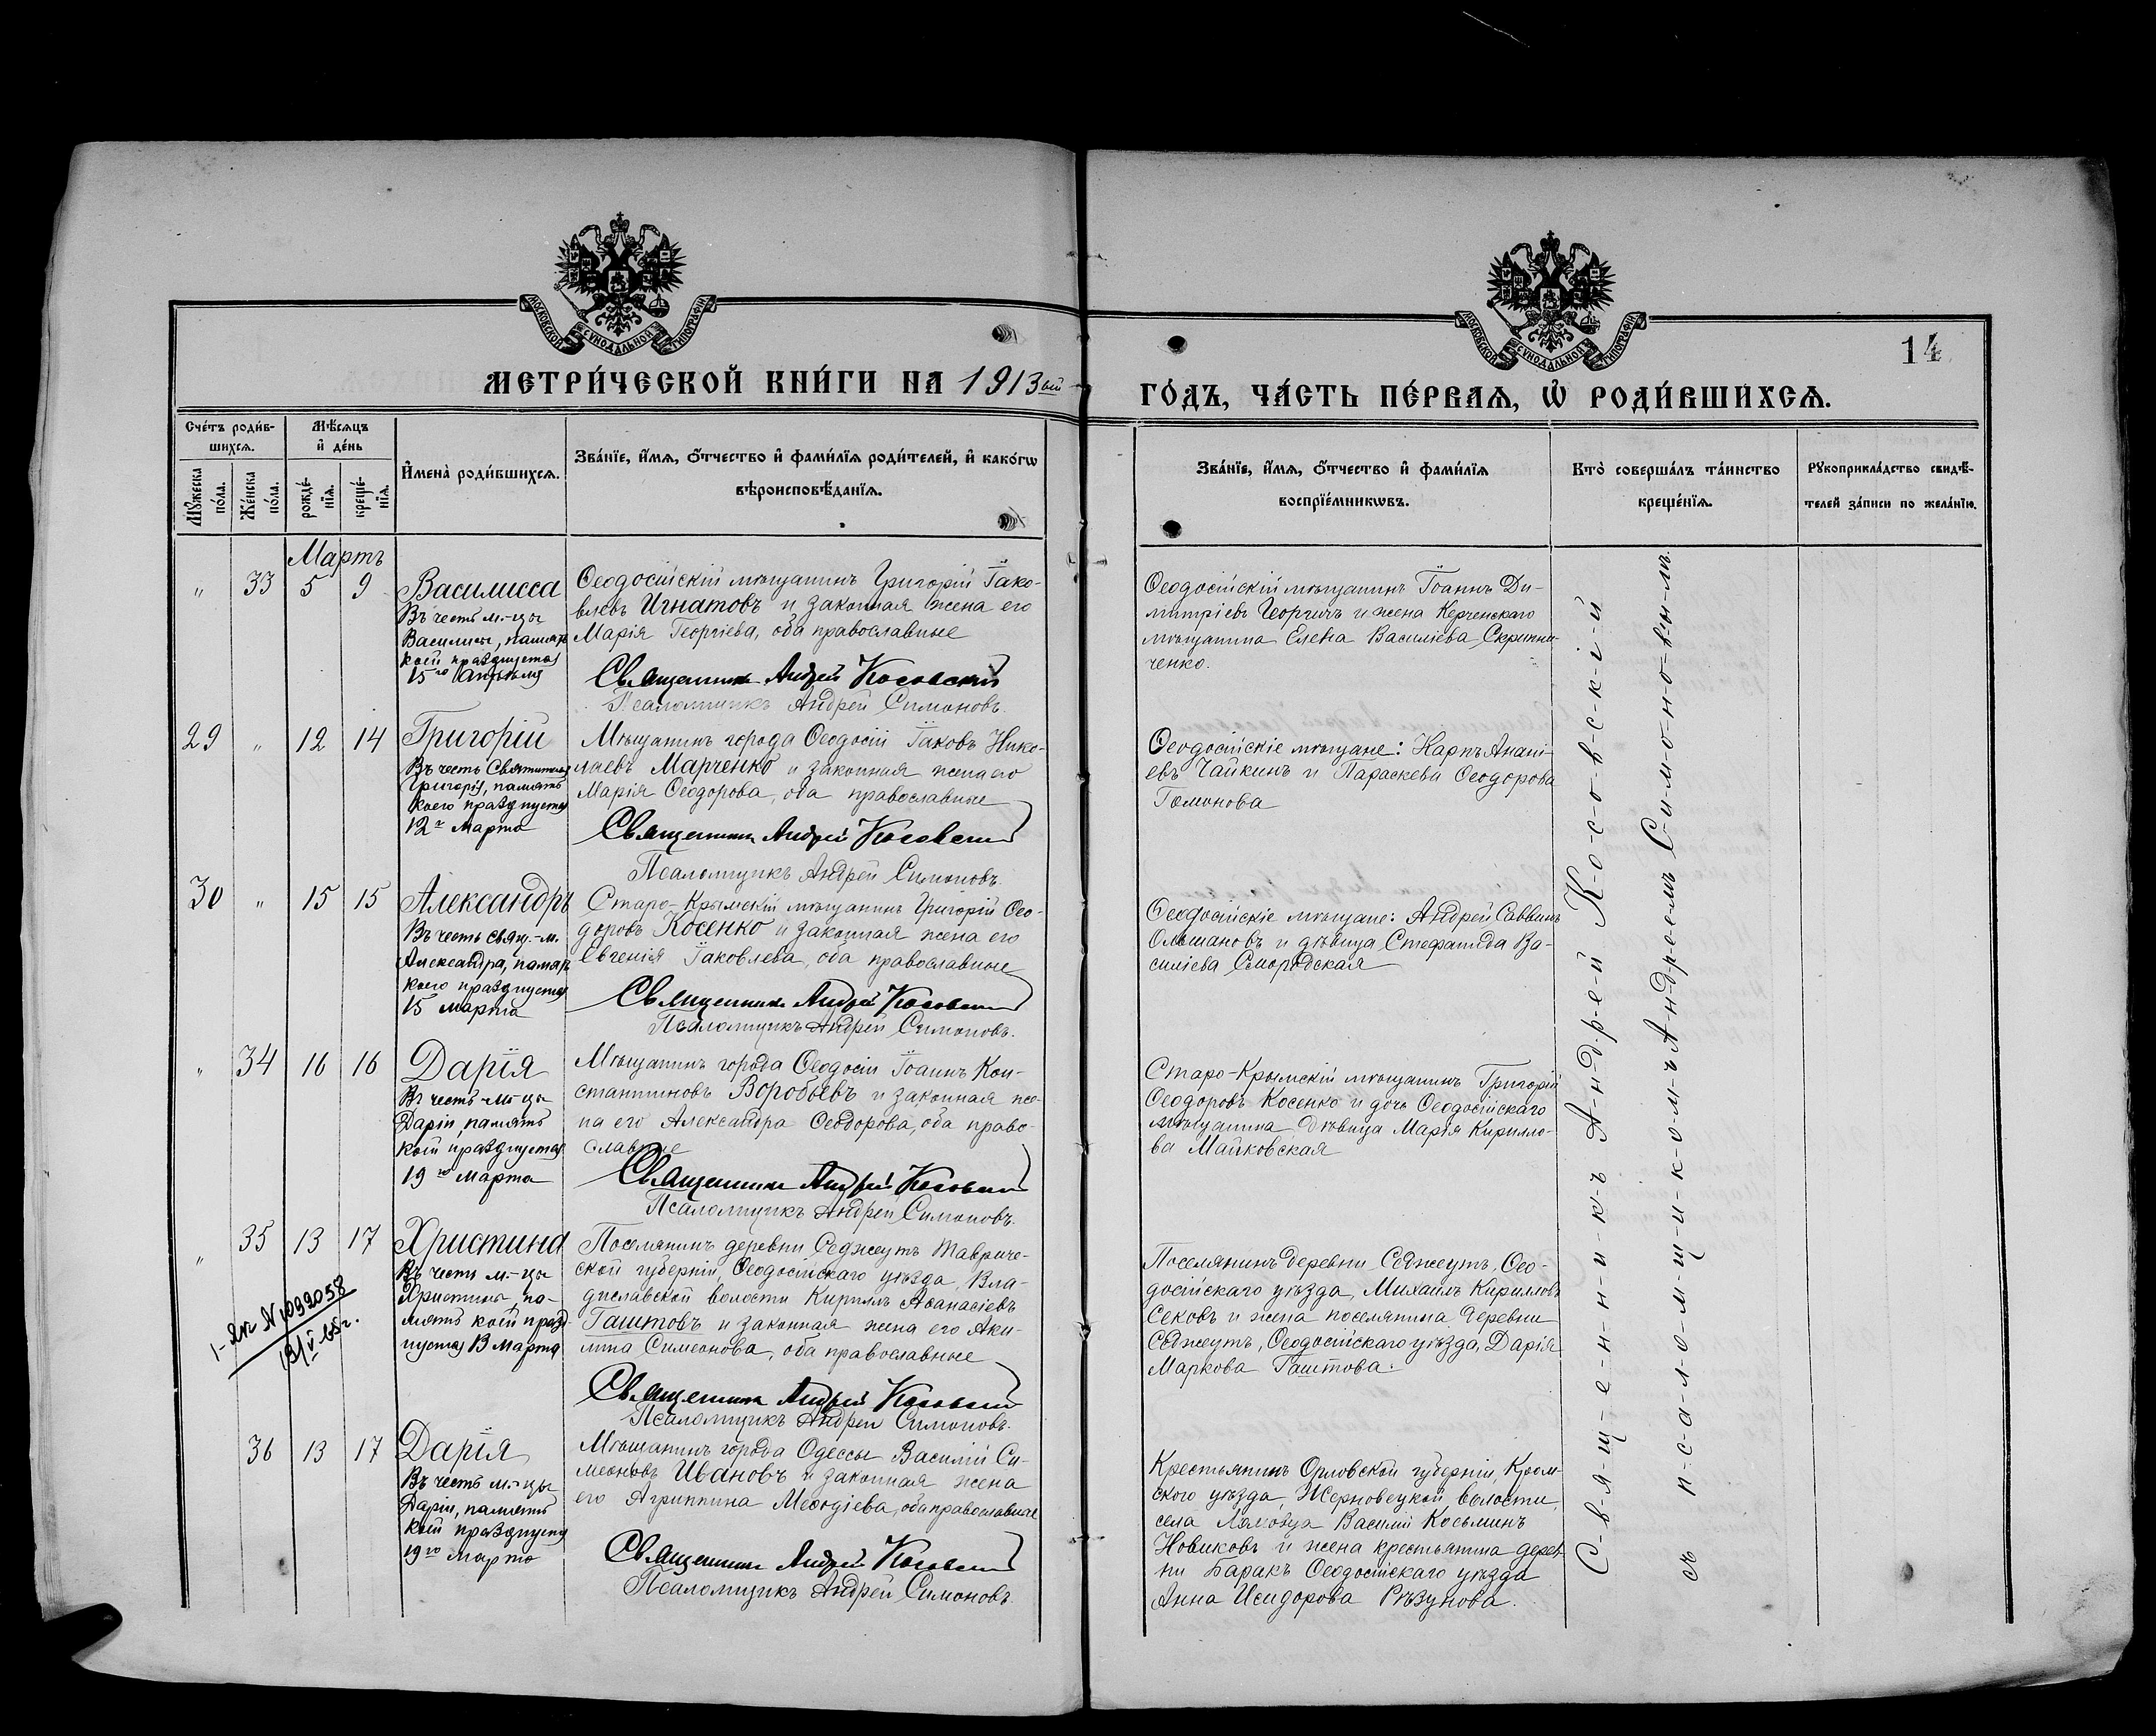 МОСКОВСКОЙ СУНОДАЛЬНОЙ ТИПОГРАФІИ
МОСКОВСКОЙ СУНОДАЛЬНОЙ ТИПОГРАФІИ
14
МЕТРИ́ЧЕСКОЙ КНИ́ГИ НА 1913ый
ГО́ДЪ, ЧА́СТЬ ПЕ́РВАѦ, Ѡ҆ РОДИ́ВШИХСѦ.
Сче́тъ роди́в-
шихсѧ.
Мꙋжеска по́ла.
Же́нска по́ла.
Мѣ́сѧцъ
и҆ де́нь
рожде́-
нїѧ.
креще́-
нїѧ.
И҆мена̀ роди́вшихсѧ.
Зва́нїе, и҆́мѧ, ѻ҆́тчество и҆ фами́лїѧ роди́телей, и҆ како́гѡ
вѣроисповѣ́данїѧ.
Зва́нїе, и҆́мѧ, ѻ҆́тчество и҆ фами́лїѧ
воспрїе́мникѡвъ.
Кто̀ соверша́лъ та́инство
креще́нїѧ.
Рꙋкоприкла́дство свидѣ́-
телей за́писи по жела́нїю.
Мартъ
" 33 5 9
Василисса
Въ честь м.-цы
Василисы, память
коей празднуется
15го Апрѣля
Ѳеодосійскій мѣщанинъ Григорій Іако-
влевъ Игнатовъ и законная жена его
Марія Георгіева, оба православные
Священникъ Андрей Косовскій
Псаломщикъ Андрей Симоновъ.
Ѳеодосійскій мѣщанинъ Іоаннъ Ди-
митріевъ Георгичъ и жена Керченскаго
мѣщанина Елена Василіева Скрипни-
ченко.
29 " 12 14
Григорій
Въ честь Святителя
Григорія, память
коего празднуется
12го Марта
Мѣщанинъ города Ѳеодосіи Іаковъ Нико-
лаевъ Марченко и законная жена его
Марія Ѳеодорова, оба православные
Священникъ Андрей Косовскій
Псаломщикъ Андрей Симоновъ.
Ѳеодосійскіе мѣщане: Карпъ Анані-
евъ Чайкинъ и Параскева Ѳеодорова
Гомонова
30 " 15 15
Александръ
Въ честь свящ.-м.
Александра, память
коего празднуется
15 Марта
Старо-Крымскій мѣщанинъ Григорій Ѳео-
доровъ Косенко и законная жена его
Евгенія Іаковлева, оба православные
Священникъ Андрей Косовскій
Псаломщикъ Андрей Симоновъ.
Ѳеодосійскіе мѣщане: Андрей Саввинъ
Ольшановъ и дѣвица Стефанида Ва-
силіева Смородская
" 34 16 16
Дарія
Въ честь м-цы
Даріи, память
коей празднуется
19го Марта
Мѣщанинъ города Ѳеодосіи Іоаннъ Кон-
стантиновъ Воробьевъ и законная же-
на его Александра Ѳеодорова, оба право-
славные
Священникъ Андрей Косовскій
Псаломщикъ Андрей Симоновъ.
Старо-Крымскій мѣщанинъ Григорій
Ѳеодоровъ Косенко и дочь Ѳеодосійскаго
мѣщанина дѣвица Марія Кирилло-
ва Майковская
" 35 13 17
Христина
Въ честь м.-цы
Христины, па-
мять коей празд-
нуется 13 Марта
№ 1092058
13/V-65г.
Поселянинъ деревниСеджеутъ Тавриче-
ской губерніи, Ѳеодосійскаго уѣзда, Вла-
диславской волости Кириллъ Аѳанасіевъ
Гаштовъ и законная жена его Аки-
лина Симеонова, оба православные
Священникъ Андрей Косовскій
Псаломщикъ Андрей Симоновъ.
Поселянинъ деревни Седжеутъ, Ѳео-
досійскаго уѣзда, Михаилъ Кирилловъ
Сековъ и жена поселянина деревни
Седжеутъ, Ѳеодосійскаго уѣзда, Дарія
Маркова Гаштова.
36 13 17
Дарія
Въ честь м.-цы
Даріи, память
коей празднуется
19го Марта
Мѣщанинъ города Одессы Василій Си-
меоновъ Ивановъ и законная жена
его Агриппина Меѳодіева, оба православные
Священникъ Андрей Косовскій
Псаломщикъ Андрей Симоновъ.
Крестьянинъ Орловской губерніи, Кром-
ского уѣзда, Жерновецкой волости,
села Василій Косьминъ
Новиковъ и жена крестьянина дерев-
ни Баракъ Ѳеодосійскаго уѣзда
Анна Исидорова Рѣзунова.
С-в-я-щ-е-н-н-и-к-ъ А-н-д-р-е-й К-о-с-о-в-с-к-і-й
съ п-с-а-л-о-м-щ-и-к-о-м-ъ А-н-д-р-е-емъ С-и-м-о-н-о-в-ы-м-ъ.